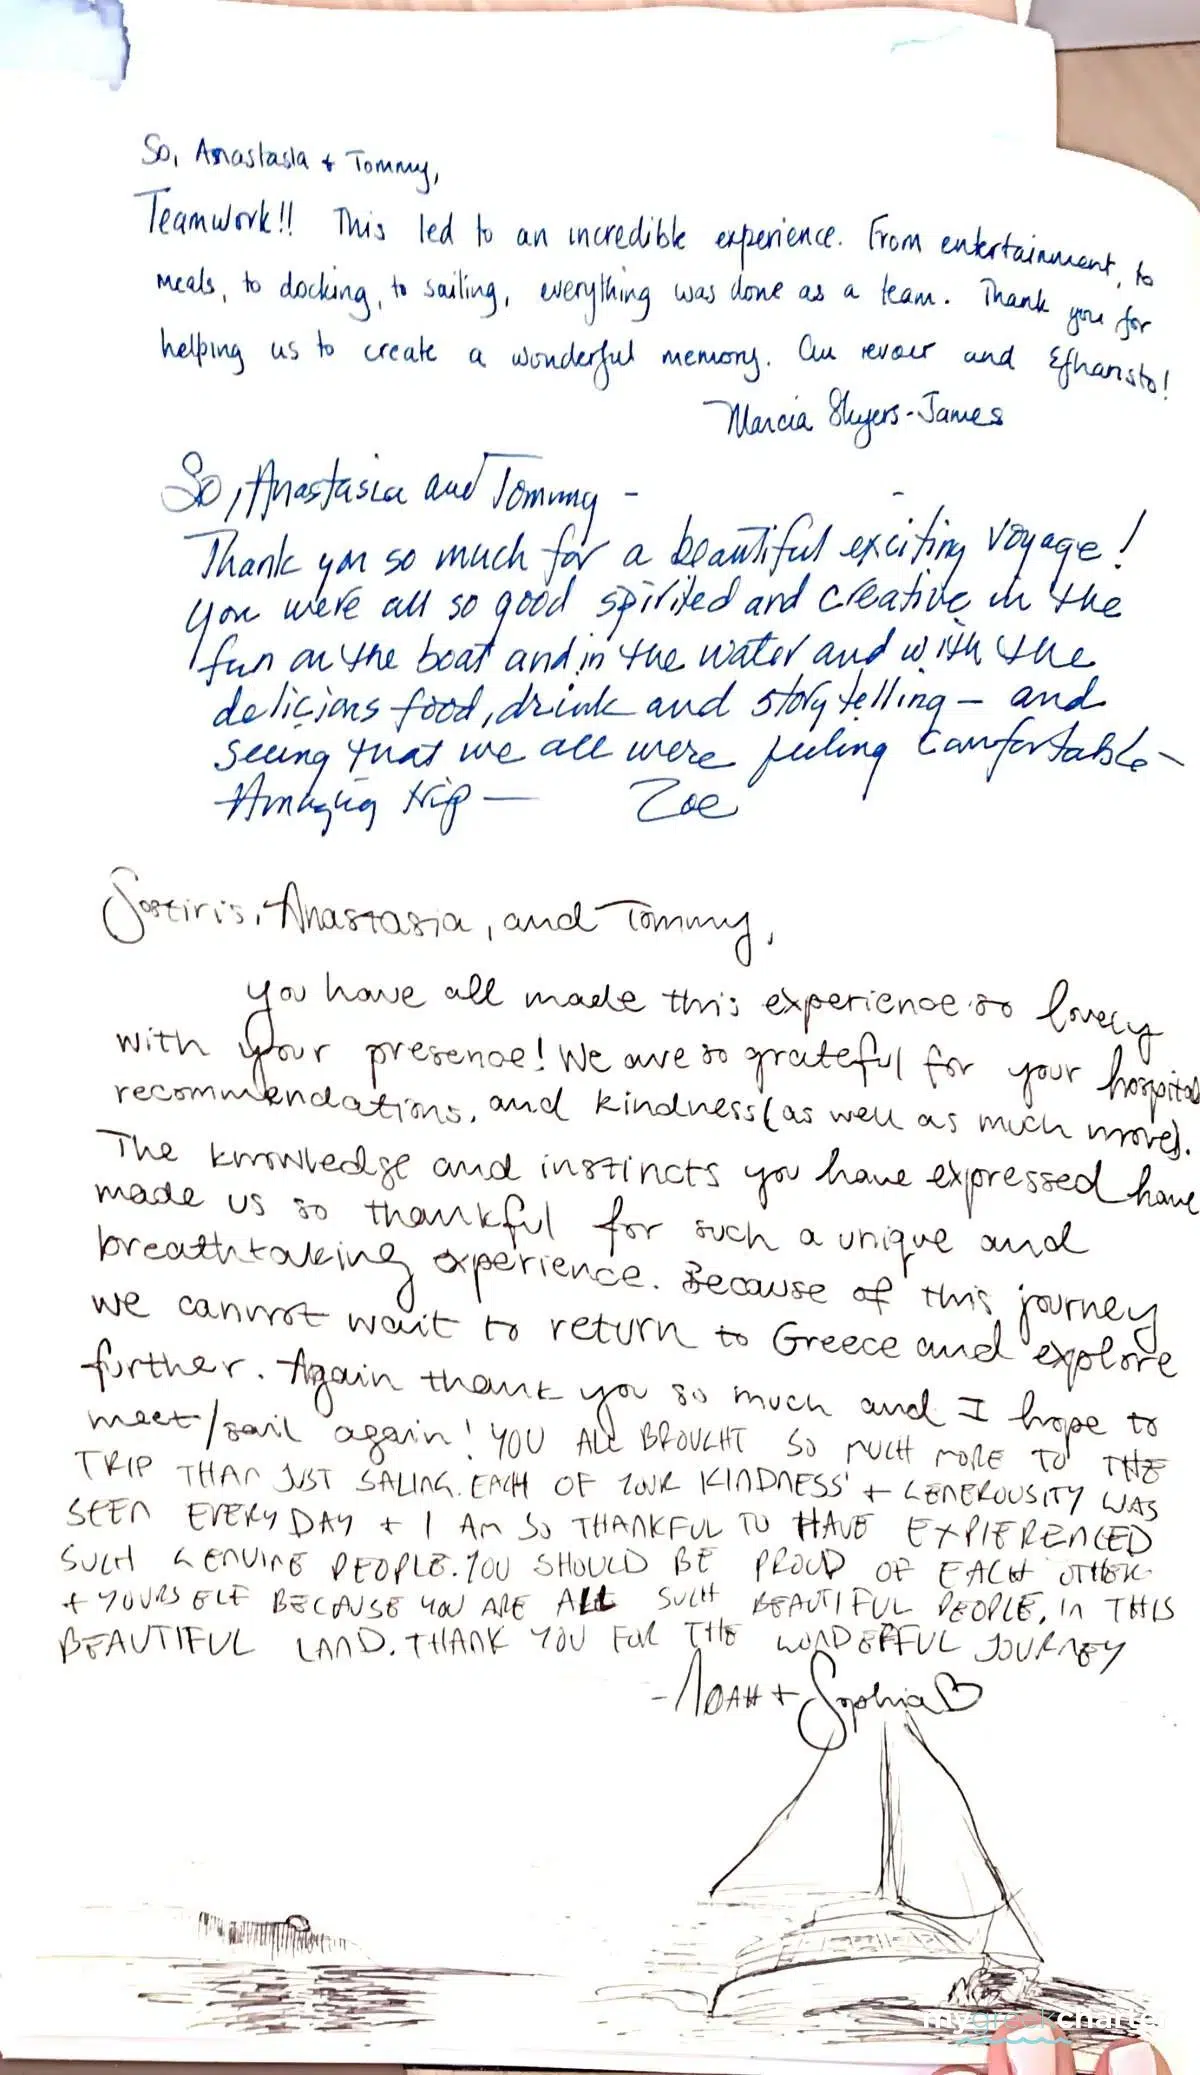 So, Anastasia + Tommy,
Teamwork!! This led to an incredible experience. From entertainment, to
meals, to docking, to sailing, everything was done as a team. Thank you for
helping us to create a wonderful memory. Au revoir and Efharisto!
Marcia Skyers-James
So, Anastasia and Tommy -
Thank you so much for a beautiful exciting voyage!
You were all so good spirited and creative in the
fun on the boat and in the water and with the
delicious food, drink and storytelling - and
seeing that we all were feeling comfortable -
Amazing trip - Zoe
Sostiris, Anastasia, and Tommy,
you have all made this experience so lovely
with your presence! We are so grateful for your
recommendations, and kindness (as well as much more).
The knowledge and instincts you have expressed have
made us so thankful for such a unique and
breathtaking experience. Because of this journey
we cannot wait to return to Greece and explore
further. Again thank you so much and I hope to
meet/sail again! YOU ALL BROUGHT SO MUCH MORE TO THE
TRIP THAN JUST SALING. EACH OF YOUR KINDNESS + GENEROUSITY WAS
SEEN EVERY DAY + I AM SO THANKFUL TO HAVE EXPIERENCED
SUCH GENUINE PEOPLE. YOU SHOULD BE PROUD OF EACH OTHER
+ YOURSELF BECAUSE YOU ARE ALL SUCH BEAUTIFUL PEOPLE, IN THIS
BEAUTIFUL LAND. THANK YOU FOR THE WONDERFUL JOURNEY
- NOAH + Sophia
mygreekcharter